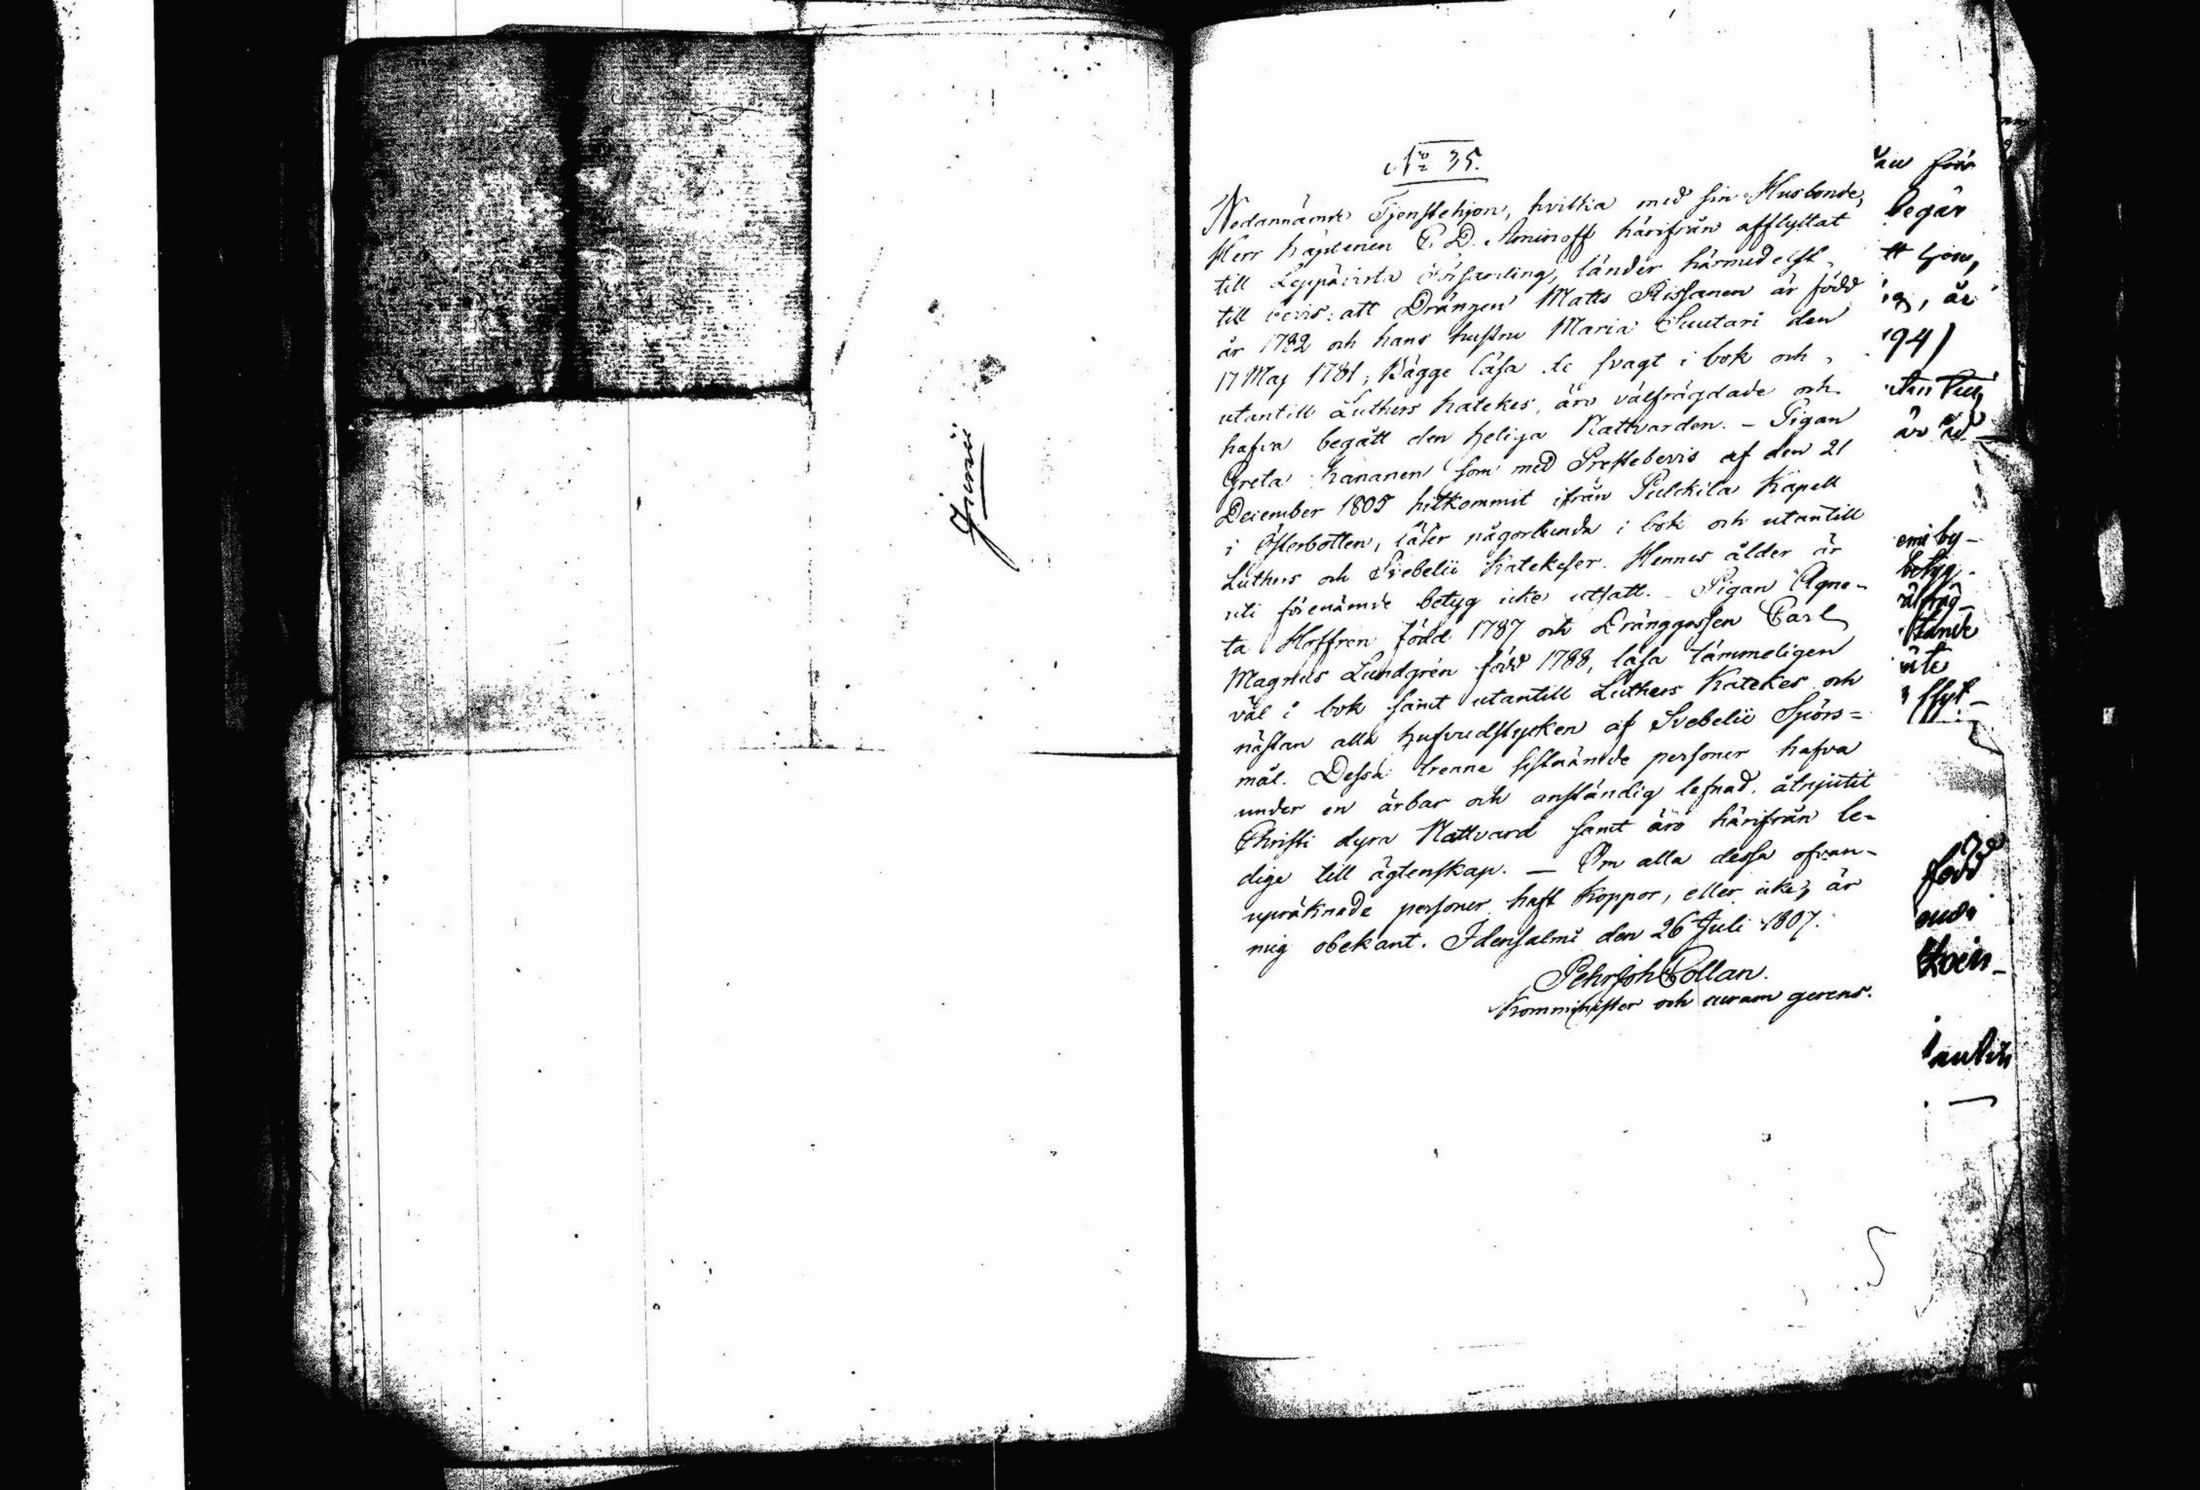 Junii
No 35.
Nedannämde Tjenstehjon, hvilka med sin Husbonde,
Herr Kaptenen C. D. Aminoff härifrån afflyttat
till Leppävirta Församling, länder härmedelst
till bevis: att Drängen Matts Rissanen är född
år 1782 och hans hustru Maria Suutari den
17 Maj 1781; Bägge läsa de svagt i bok och
utantill Luthers Katekes, äro välfrägdade och
hafva begått den heliga Nattvarden. – Pigan
Greta Kananen som med Prestebevis af den 21
December 1805 hitkommit ifrån Pulckila Kapell
i Österbotten, läser någorlunda i bok och utantill
Luthers och Svebelii Katekeser. Hennes ålder är
uti förenämde betyg icke utsatt. – Pigan Agne-
ta Hoffren född 1787 och Dränggossen Carl
Magnus Lundgrén född 1788, läsa tämmeligen
väl i bok samt utantill Luthers Katekes och
nästan alla hufvudstycken af Svebelii Spörs=
mål. Dessa trenne sistnämde personer hafva
under en ärbar och anständig lefnad, åtnjutit
Christi dyra Nattvard samt äro härifrån le-
dige till ägtenskap. — Om alla dessa ofvan-
upräknade personer haft Koppor, eller icke, är
mig obekant. Idensalmi den 26 Juli 1807.
Pehr Joh Collan.
Komminister och curam gerens.
för
begär
är
94)
är
emi by-
betyg
född